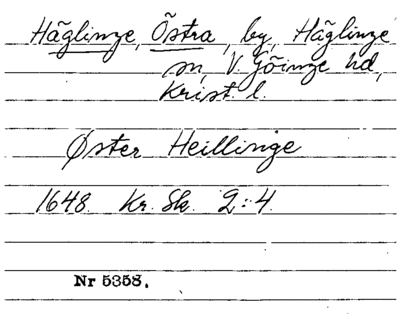 Häglinge, Östra, by, Häglinge
sn, V. Göinge hd,
Krist. l.
Øster Heillinge
1648. Kr. Sk. 2:4.
Nr 5358.